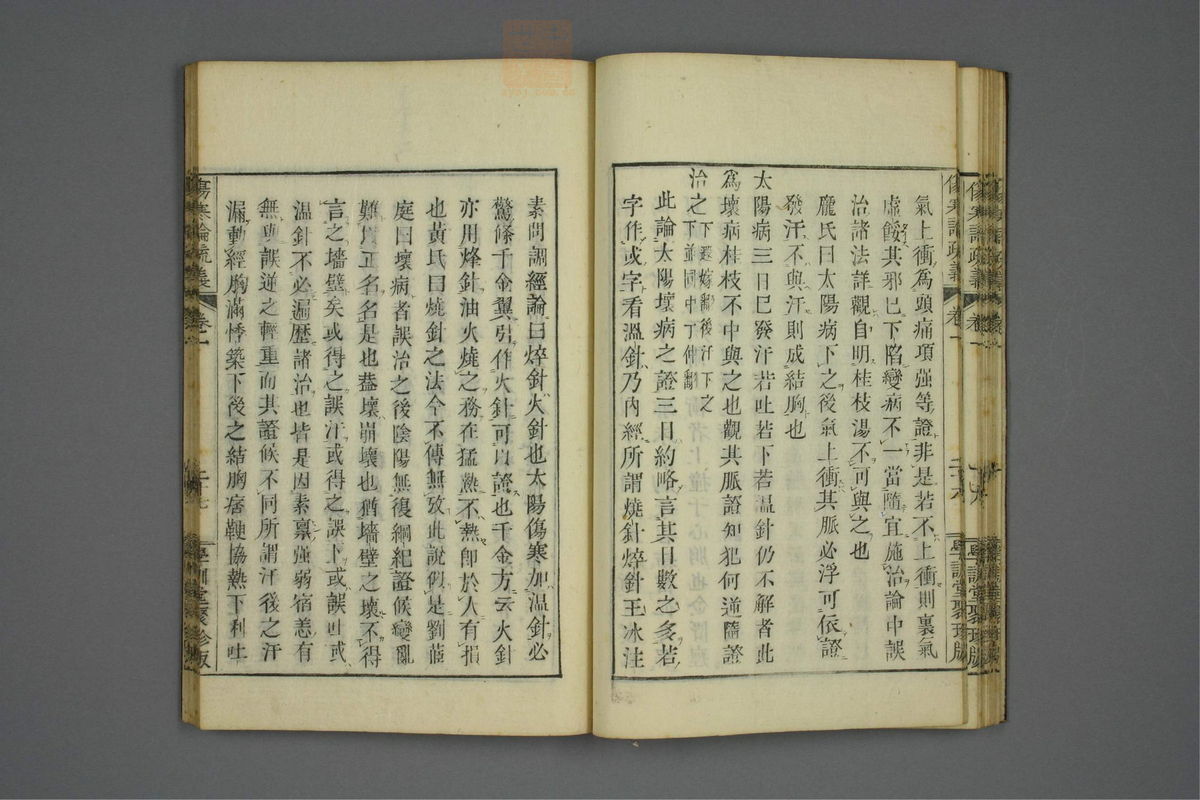 氣上衝爲頭痛項强等證非是若不上衝則裏氣
虛餒其邪已下陷變病不一當隨宜施治論中誤
治諸法詳觀自明桂枝湯不可與之也
龐氏曰太陽病下之後氣上衝其脈必浮可依證
發汗不與汗則成結胸也
太陽病三日已發汗若吐若下若温針仍不解者此
爲壞病桂枝不中與之也觀其脈證知犯何逆隨證
治之
此論太陽壞病之證三日約略言其日數之多若
字作或字看溫針乃内經所謂燒針焠針王冰注
傷寒論疏義 卷一
學訓堂聚珍版
素問調經論曰焠針火針也太陽傷寒加温針必
驚條千金翼引作火針可以證也千金方云火針
亦用烽針油火燒之務在猛熱不熱即於人有損
也黃氏曰燒針之法今不傳無攷此說似是劉蒞
庭曰壞病者誤治之後陰陽無復綱紀證候變亂
難以正名名是也蓋壞崩壞也猶墻壁之壞不得
言之墻壁矣或得之誤汗或得之誤下或誤吐或
温針不必遍歷諸治也皆是因素稟强弱宿恙有
無與誤逆之輕重而其證候不同所謂汗後之汗
漏動經胸滿悸築下後之結胸痞鞕協熱下利吐
傷寒論疏義 卷一
學訓堂聚珍版